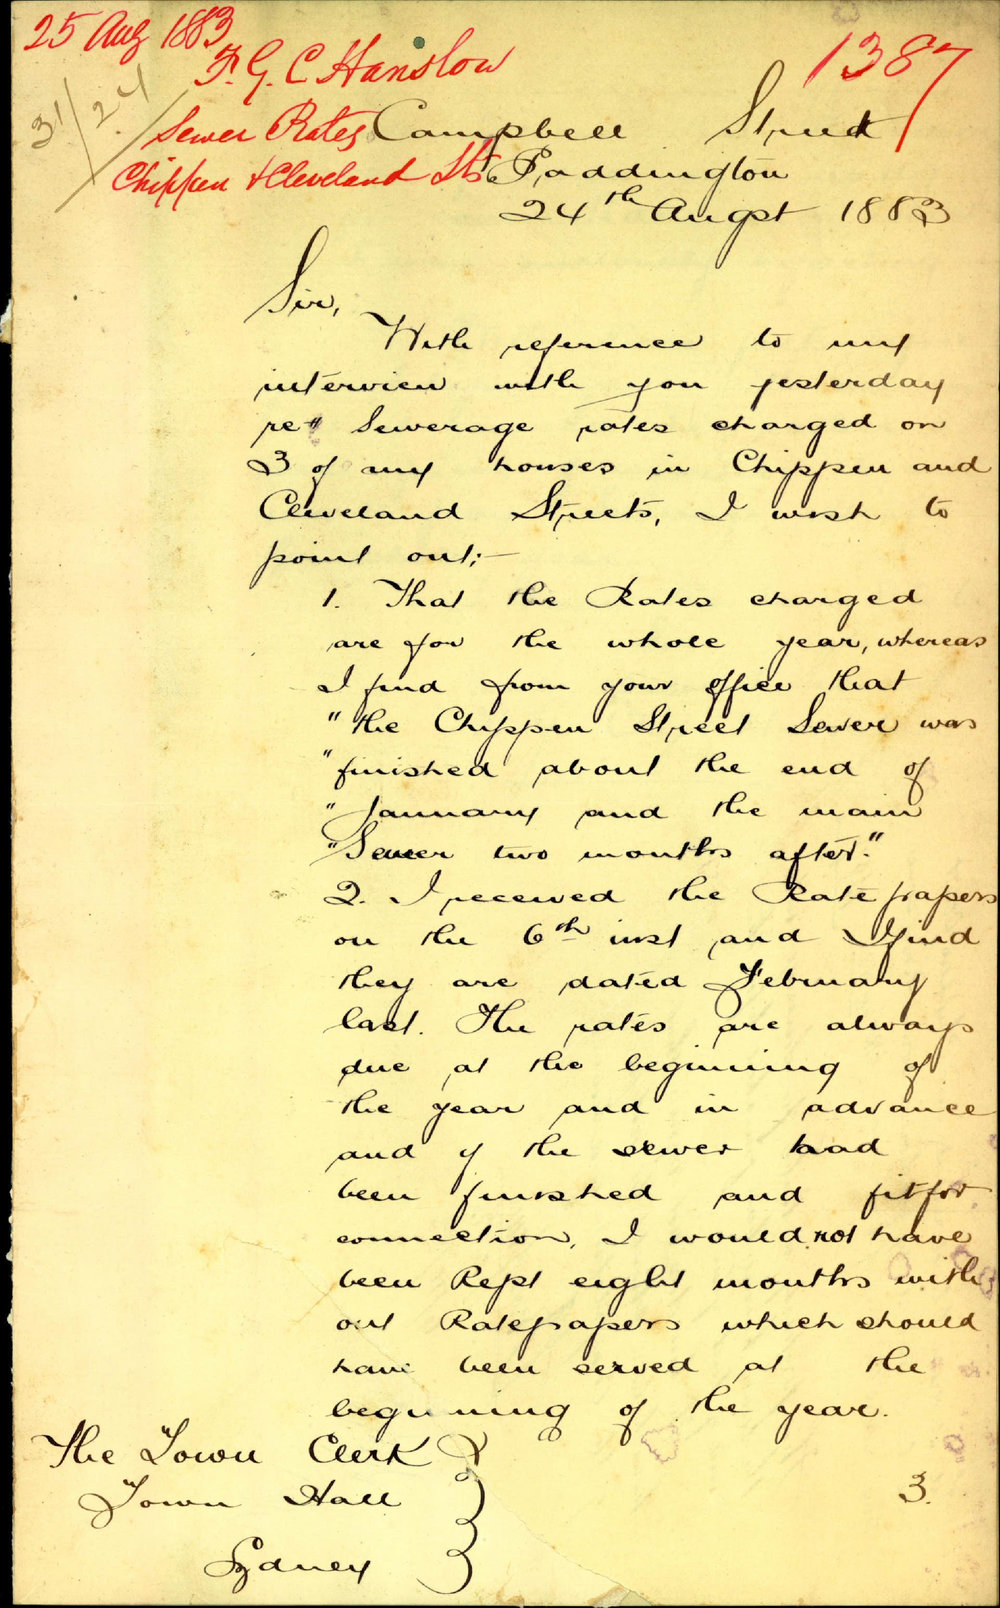 25 Aug 1883
F. G. C Hanslow
1387
31/24
Sewer Rates
Chippen & Cleveland Sts
Campbell Street
Paddington
24th Augst 1883
Sir,
With reference to my
interview with you yesterday
re Sewerage rates charged on
3 of my houses in Chippen and
Cleveland Streets, I wish to
point out;-
1. That the Rates charged
are for the whole year, whereas
I find from your office that
"the Chippen Street Sewer was
"finished about the end of
"January and the main
"Sewer two months after."
2. I received the Rate papers
on the 6th inst and I find
they are dated February
last. The rates are always
due at the beginning of
the year and in advance
and if the sewer had
been finished and fit for
connection, I would not have
been Kept eight months with
out Ratepapers which should
have been served at the
beginning of the year.
The Town Clerk
Town Hall
Sydney
3.